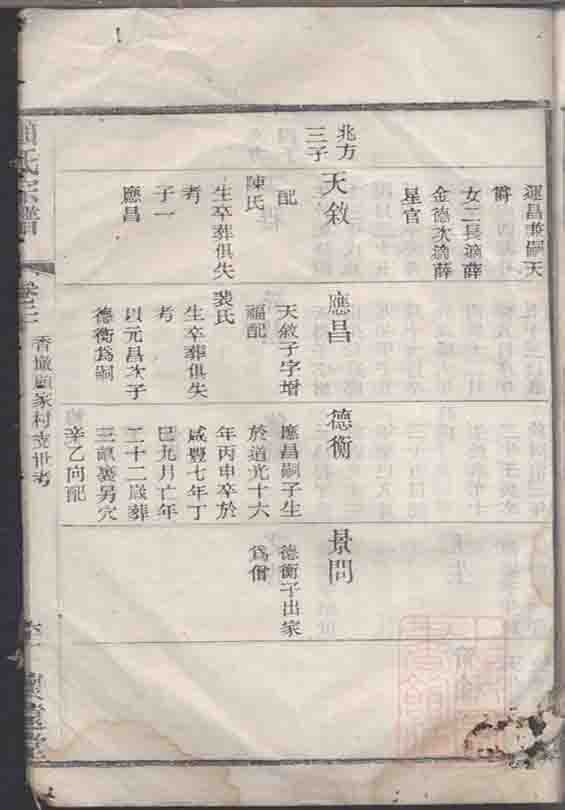 北方
三子
運昌兼嗣天
爵
女二長適薛
金德次適薛
星官
天敘
配
陳氏
生卒葬俱失
考
子一
應昌
應昌
天敘子字增
福配
裴氏
生卒葬俱失
考
以元昌次子
德衡爲嗣
德衡
應昌嗣子生
於道光十六
年丙申卒於
咸豐七年丁
巳九月亡年
二十二歲葬
三畝裏另穴
辛乙向配
景問
德衡子出家
爲僧
氏宗譜
卷之二
顧家村支世考